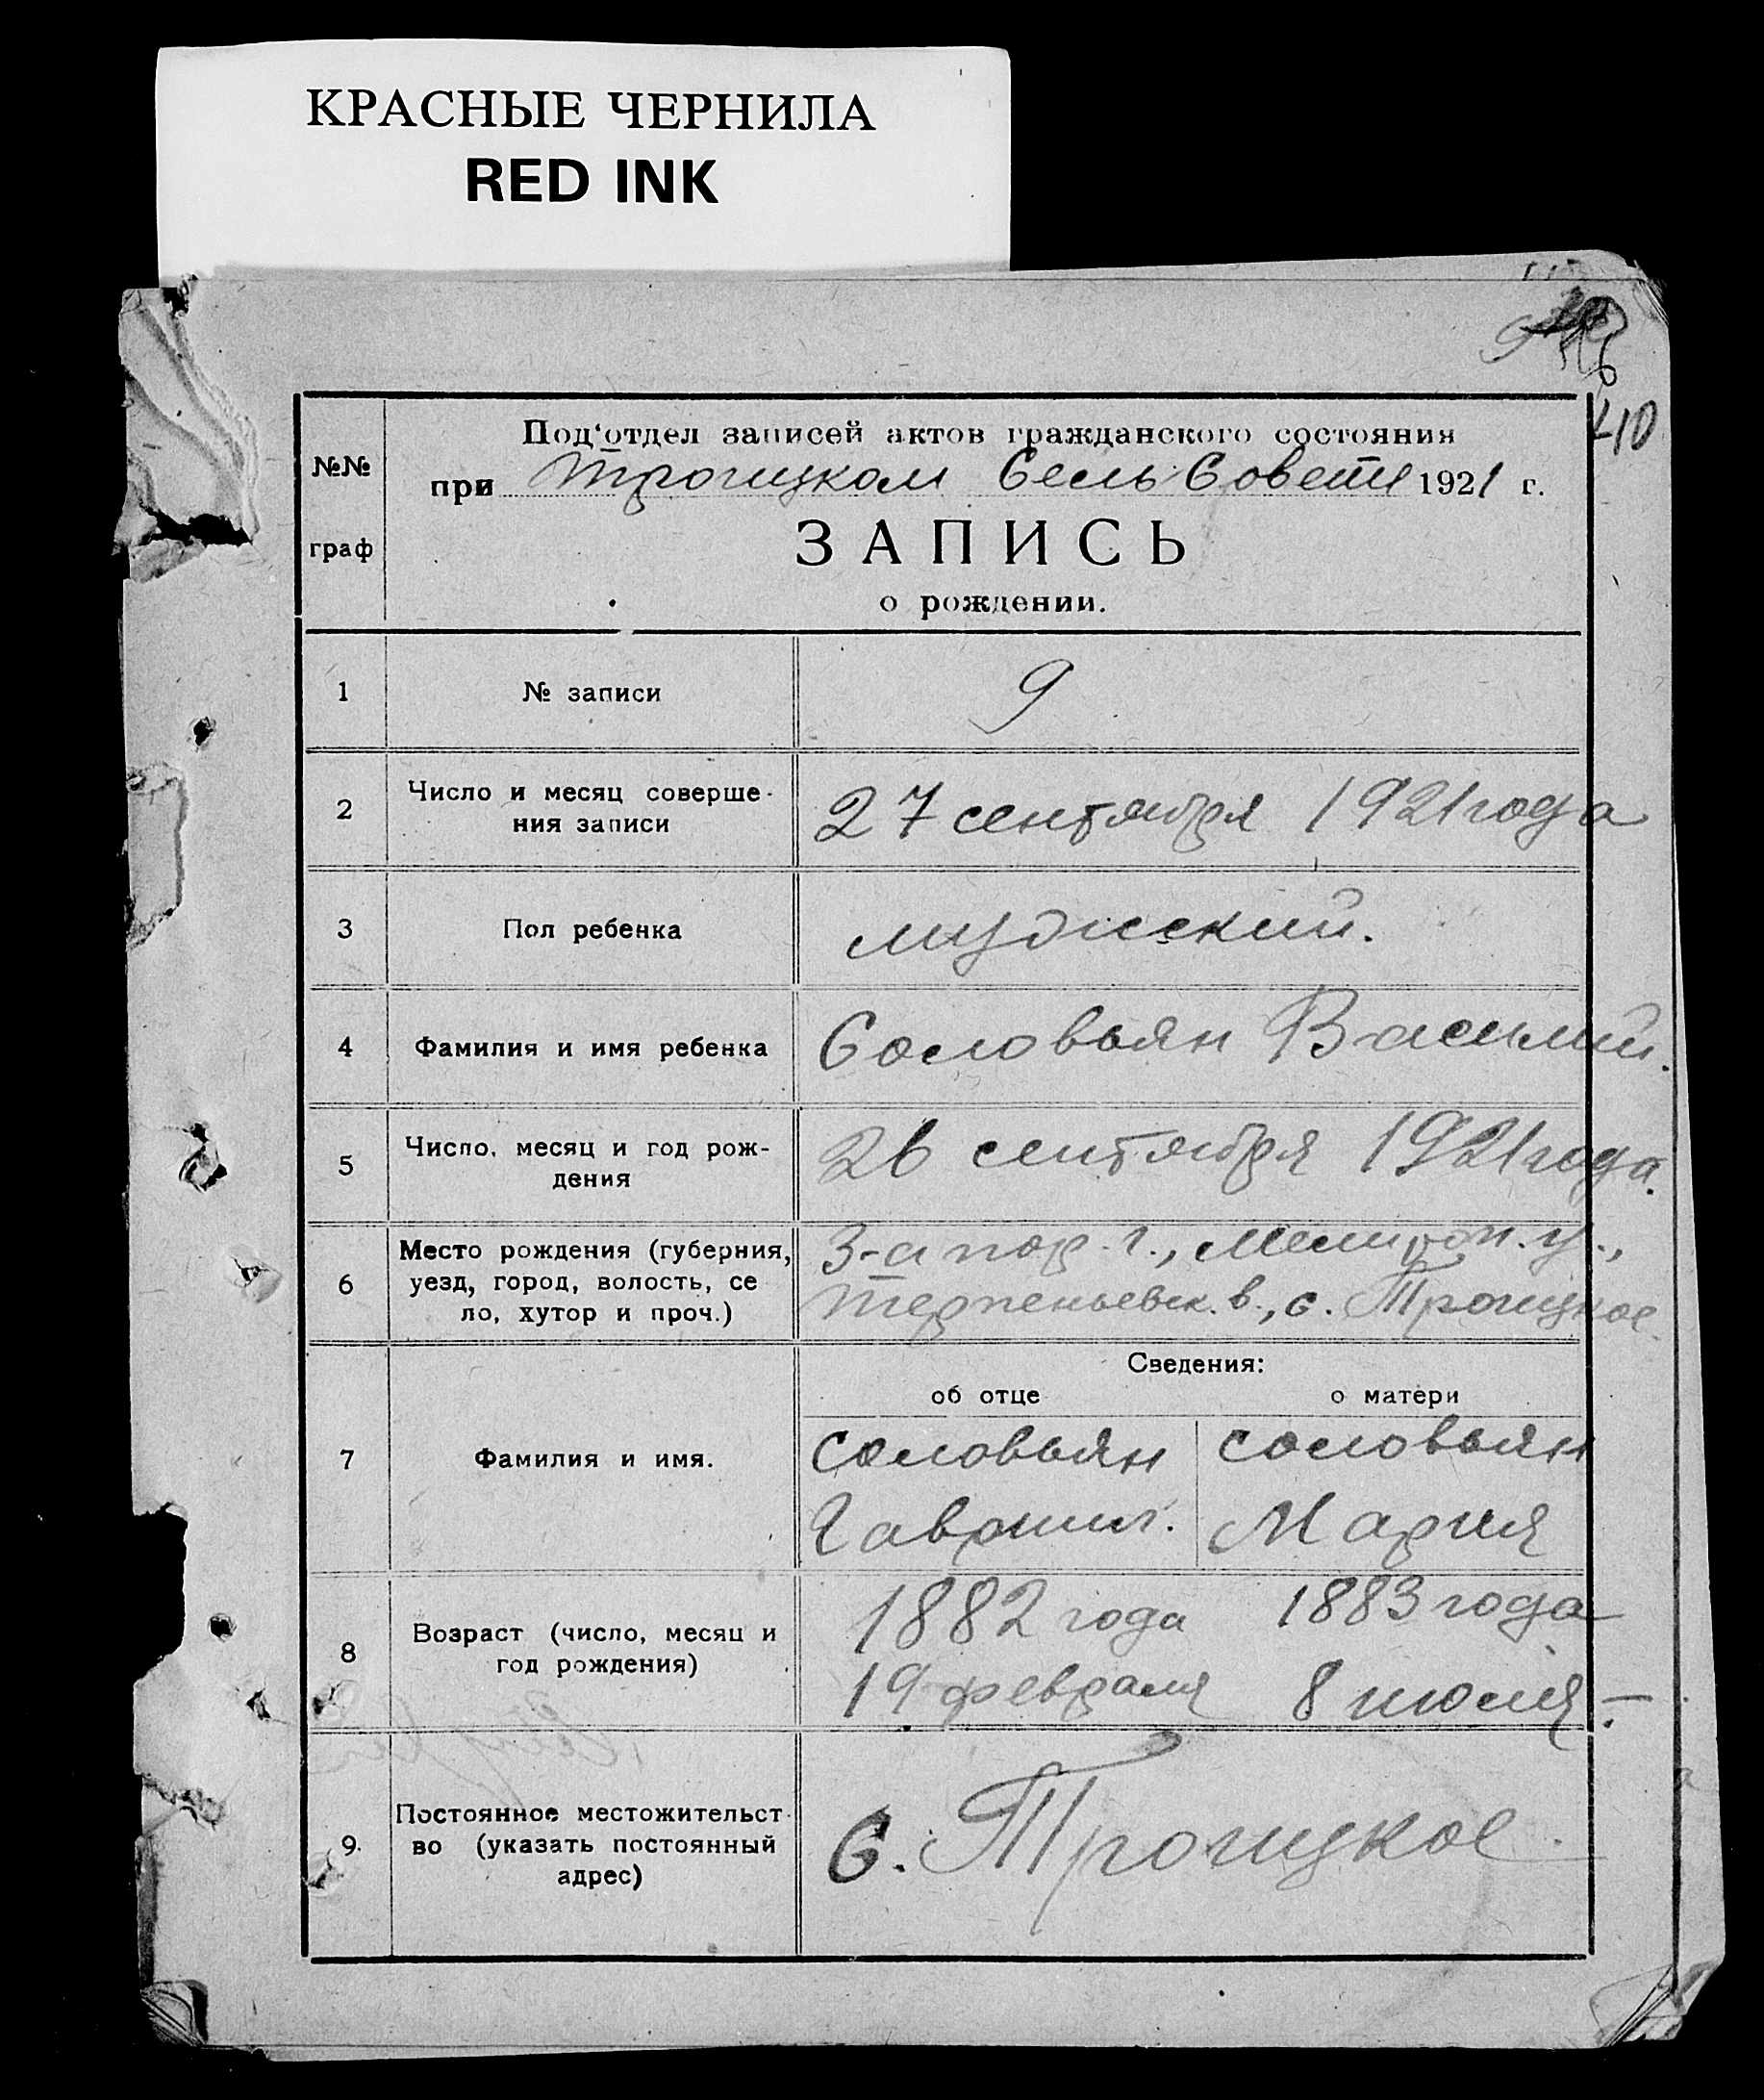 КРАСНЫЕ ЧЕРНИЛА
RED INK
9
410
№№
граф
Под‘отдел записей актов гражданского состояния
при Троицком Сель Совети 1921 г.
ЗАПИСЬ
о рождении.
1 № записи 9
2 Число и месяц соверше-
ния записи
27 сентября 1921 года
3 Пол ребенка мужский.
4 Фамилия и имя ребенка Соловьян Василий.
5 Число, месяц и год рож-
дения
26 сентября 1921 года.
6 Место рождения (губерния,
уезд, город, волость, се
ло, хутор и проч.)
З-апор. г., Мелитоп. у.,
Терпеньевск. в., с. Троицкое.
Сведения:
об отце о матери
7 Фамилия и имя.
Соловьян Соловьян
Гавриил. Мария
8 Возраст (число, месяц и
год рождения)
1882 года 1883 года
19 февраля 8 июля –.
9. Постоянное местожительст-
во (указать постоянный
адрес)
С. Троицкое.